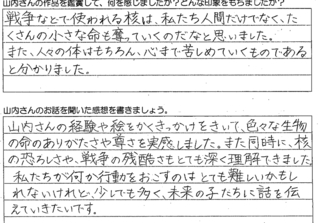 山内さんの作品を鑑賞して、何を感じましたか？どんな印象をもちましたか？
戦争などで使われる核は、私たち人間だけでなく、た
くさんの小さな命も奪っていくのだなと思いました。
また、人々の体はもちろん、心まで苦しめていくものである
と分かりました。
山内さんのお話を聞いた感想を書きましょう。
山内さんの経験や絵をかくきっかけをきいて、色々な生物
の命のありがたさや尊さを実感しました。また同時に、核
の恐ろしさや、戦争の残酷さもとても深く理解できました。
私たちが何か行動をおこすのはとても難しいかもし
れないけれど、少しでも多く、未来の子たちに話を伝
えていきたいです。